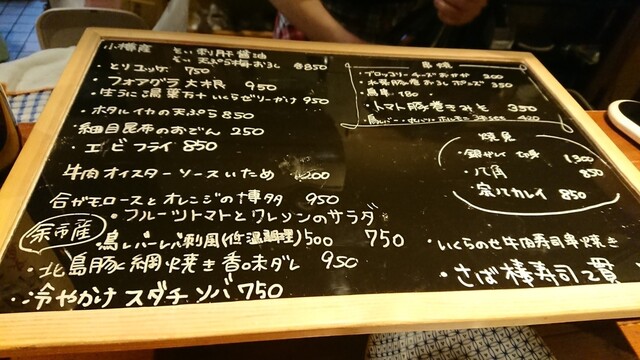 小樽産 とい刺肝醤油
とい 天ぷら梅おろし 各850
・とりユッケ 750
・フォアグラ大根 950
いくらゼリーかけ 950
・ホタルイカの天ぷら 850
・細目昆布のおでん 250
・エビフライ 850
牛肉オイスターソースいため 200
合がモロースとオレンジの博多 950
・フルーツトマトとクレソンのサラダ 750
余市産
鳥レバーレバ刺風(低温調理) 500
・北島豚網焼き香味ダレ 950
・冷やかけスダチソバ 750
串焼
・ブロッコリーチーズおかか 200
豚おろしポンズ 350
・鳥串 180
・トマト豚巻きみそ 350
420
焼魚
・銀ガレイ 1300
・八角 850
・宗八カレイ 850
・いくらのせ牛肉寿司串焼き
・さば棒寿司 2貫